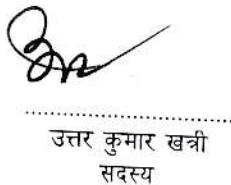 उत्तर कुमार खत्री
सदस्य